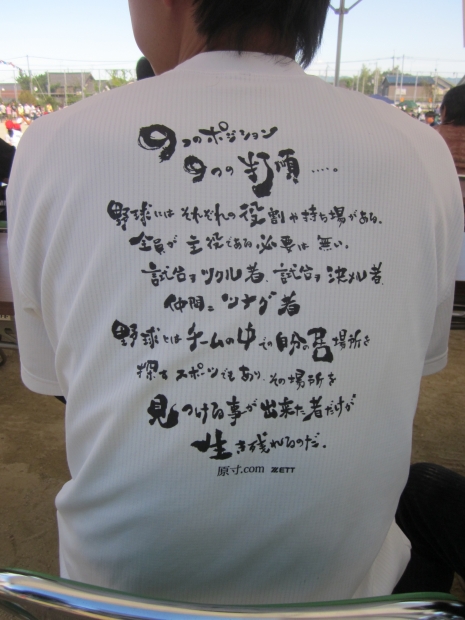 9つのポジション
9つの打順・・・・・。
野球にはそれぞれの役割や持ち場がある。
全員が主役である必要は無い。
試合ヲツクル者、試合ヲ決メル者、
仲間ニツナグ者
野球とはチームの中での自分の居場所を
探すスポーツでもあり、その場所を
見つける事が出来た者だけが
生き残れるのだ。
原寸.com ZETT